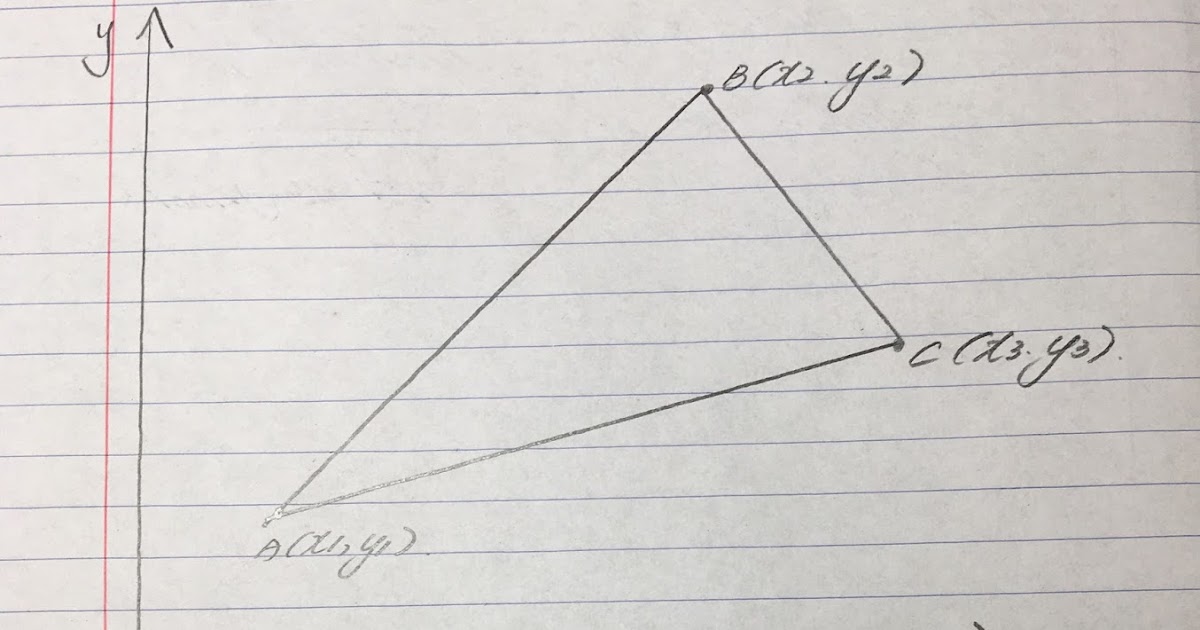 y
B(x2. y2)
C(x3. y3).
A(x1, y1).